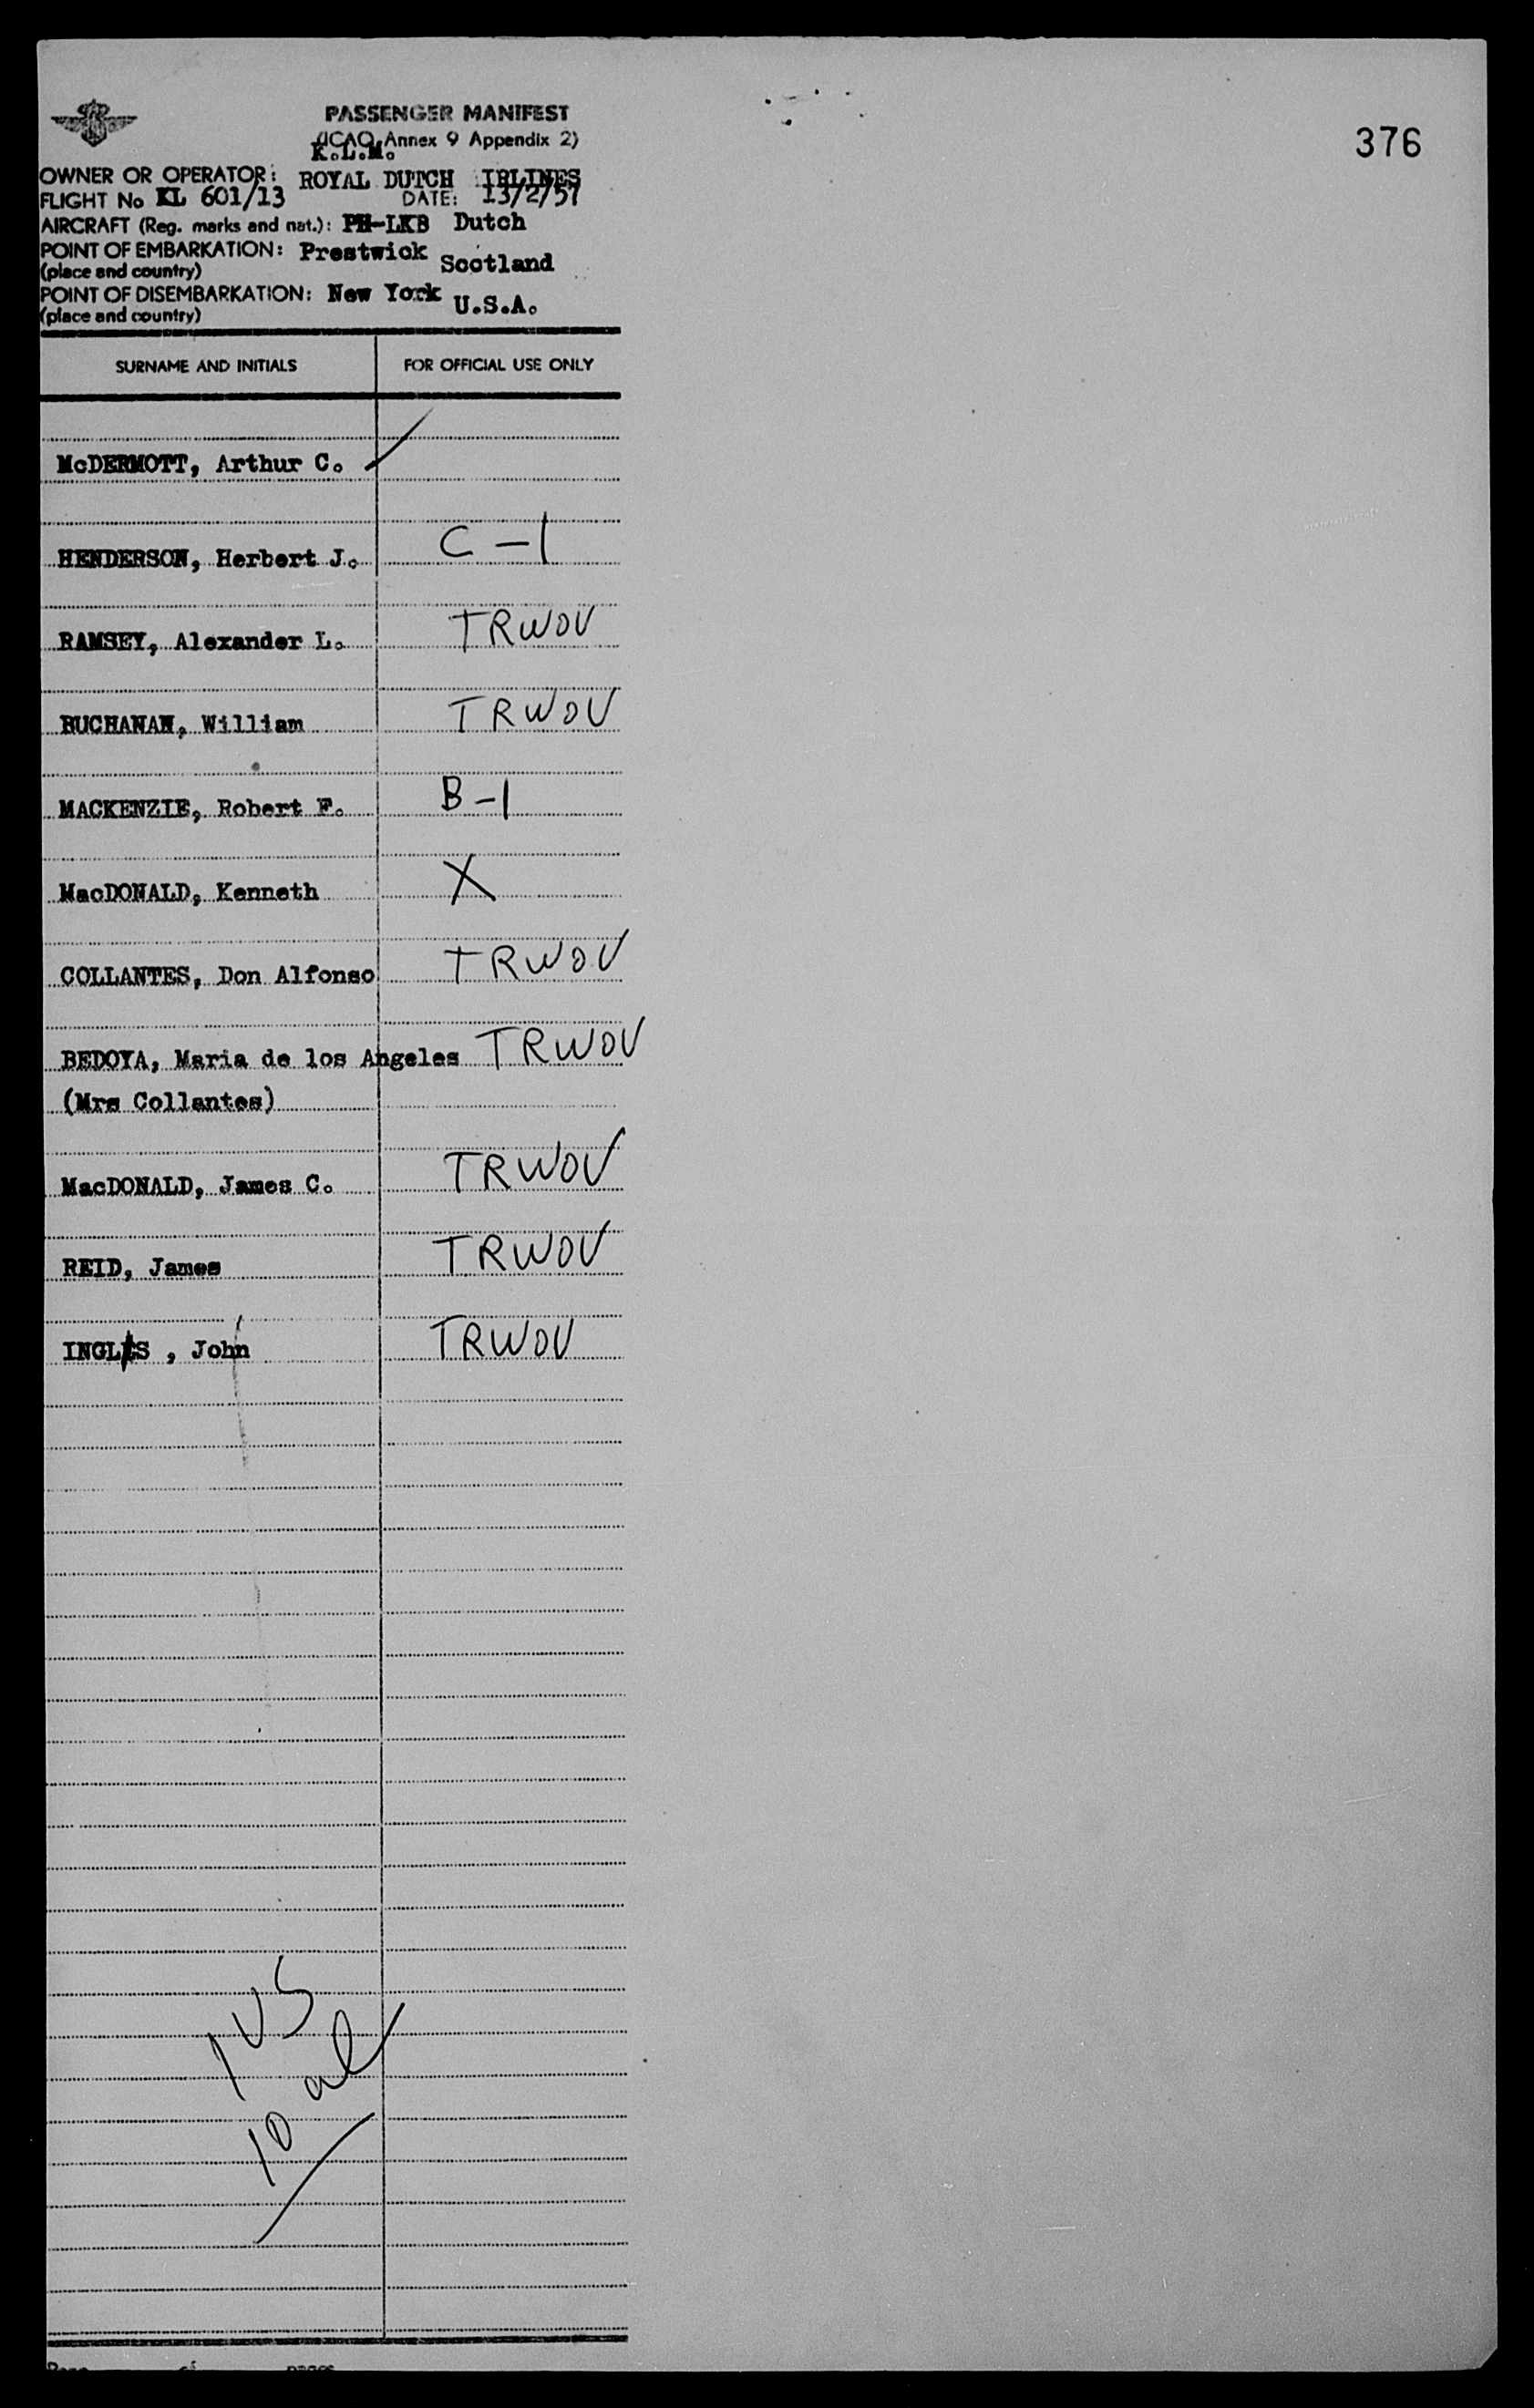 376
PASSENGER MANIFEST
(ICAO Annex 9 Appendix 2)
K.L.M.
OWNER OR OPERATOR: ROYAL DUTCH IRLINES
FLIGHT No KL 601/13 DATE: 13/2/57
AIRCRAFT (Reg. marks and nat.): PH-LKB Dutch
POINT OF EMBARKATION: Prestwick Scotland
(place and country)
POINT OF DISEMBARKATION: New York U.S.A.
(place and country)
SURNAME AND INITIALS FOR OFFICIAL USE ONLY
McDERMOTT, Arthur C.
HENDERSON, Herbert J. C-1
RAMSEY, Alexander L. TRWOV
BUCHANAN, William TRWOV
MACKENZIE, Robert F. B-1
MacDONALD, Kenneth X
COLLANTES, Don Alfonso TRWOV
BEDOYA, Maria de los Angeles TRWOV
(Mrs Collantes)
MacDONALD, James C. TRWOV
REID, James TRWOV
INGLIS , John TRWOV
1 US
10 al